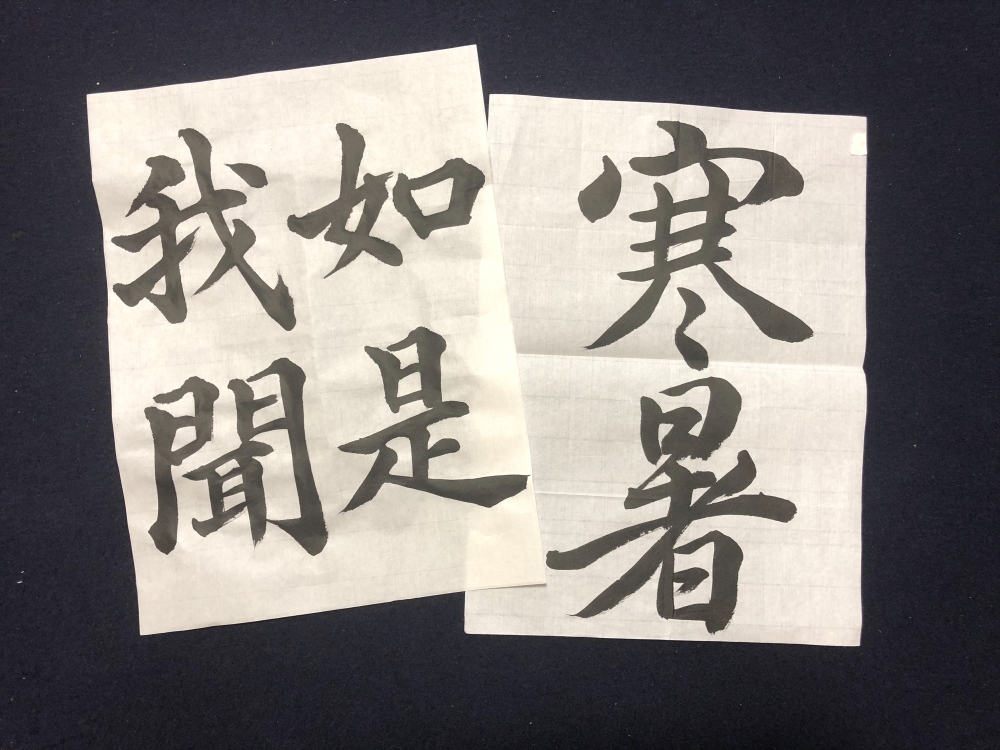 寒暑
如是
我聞